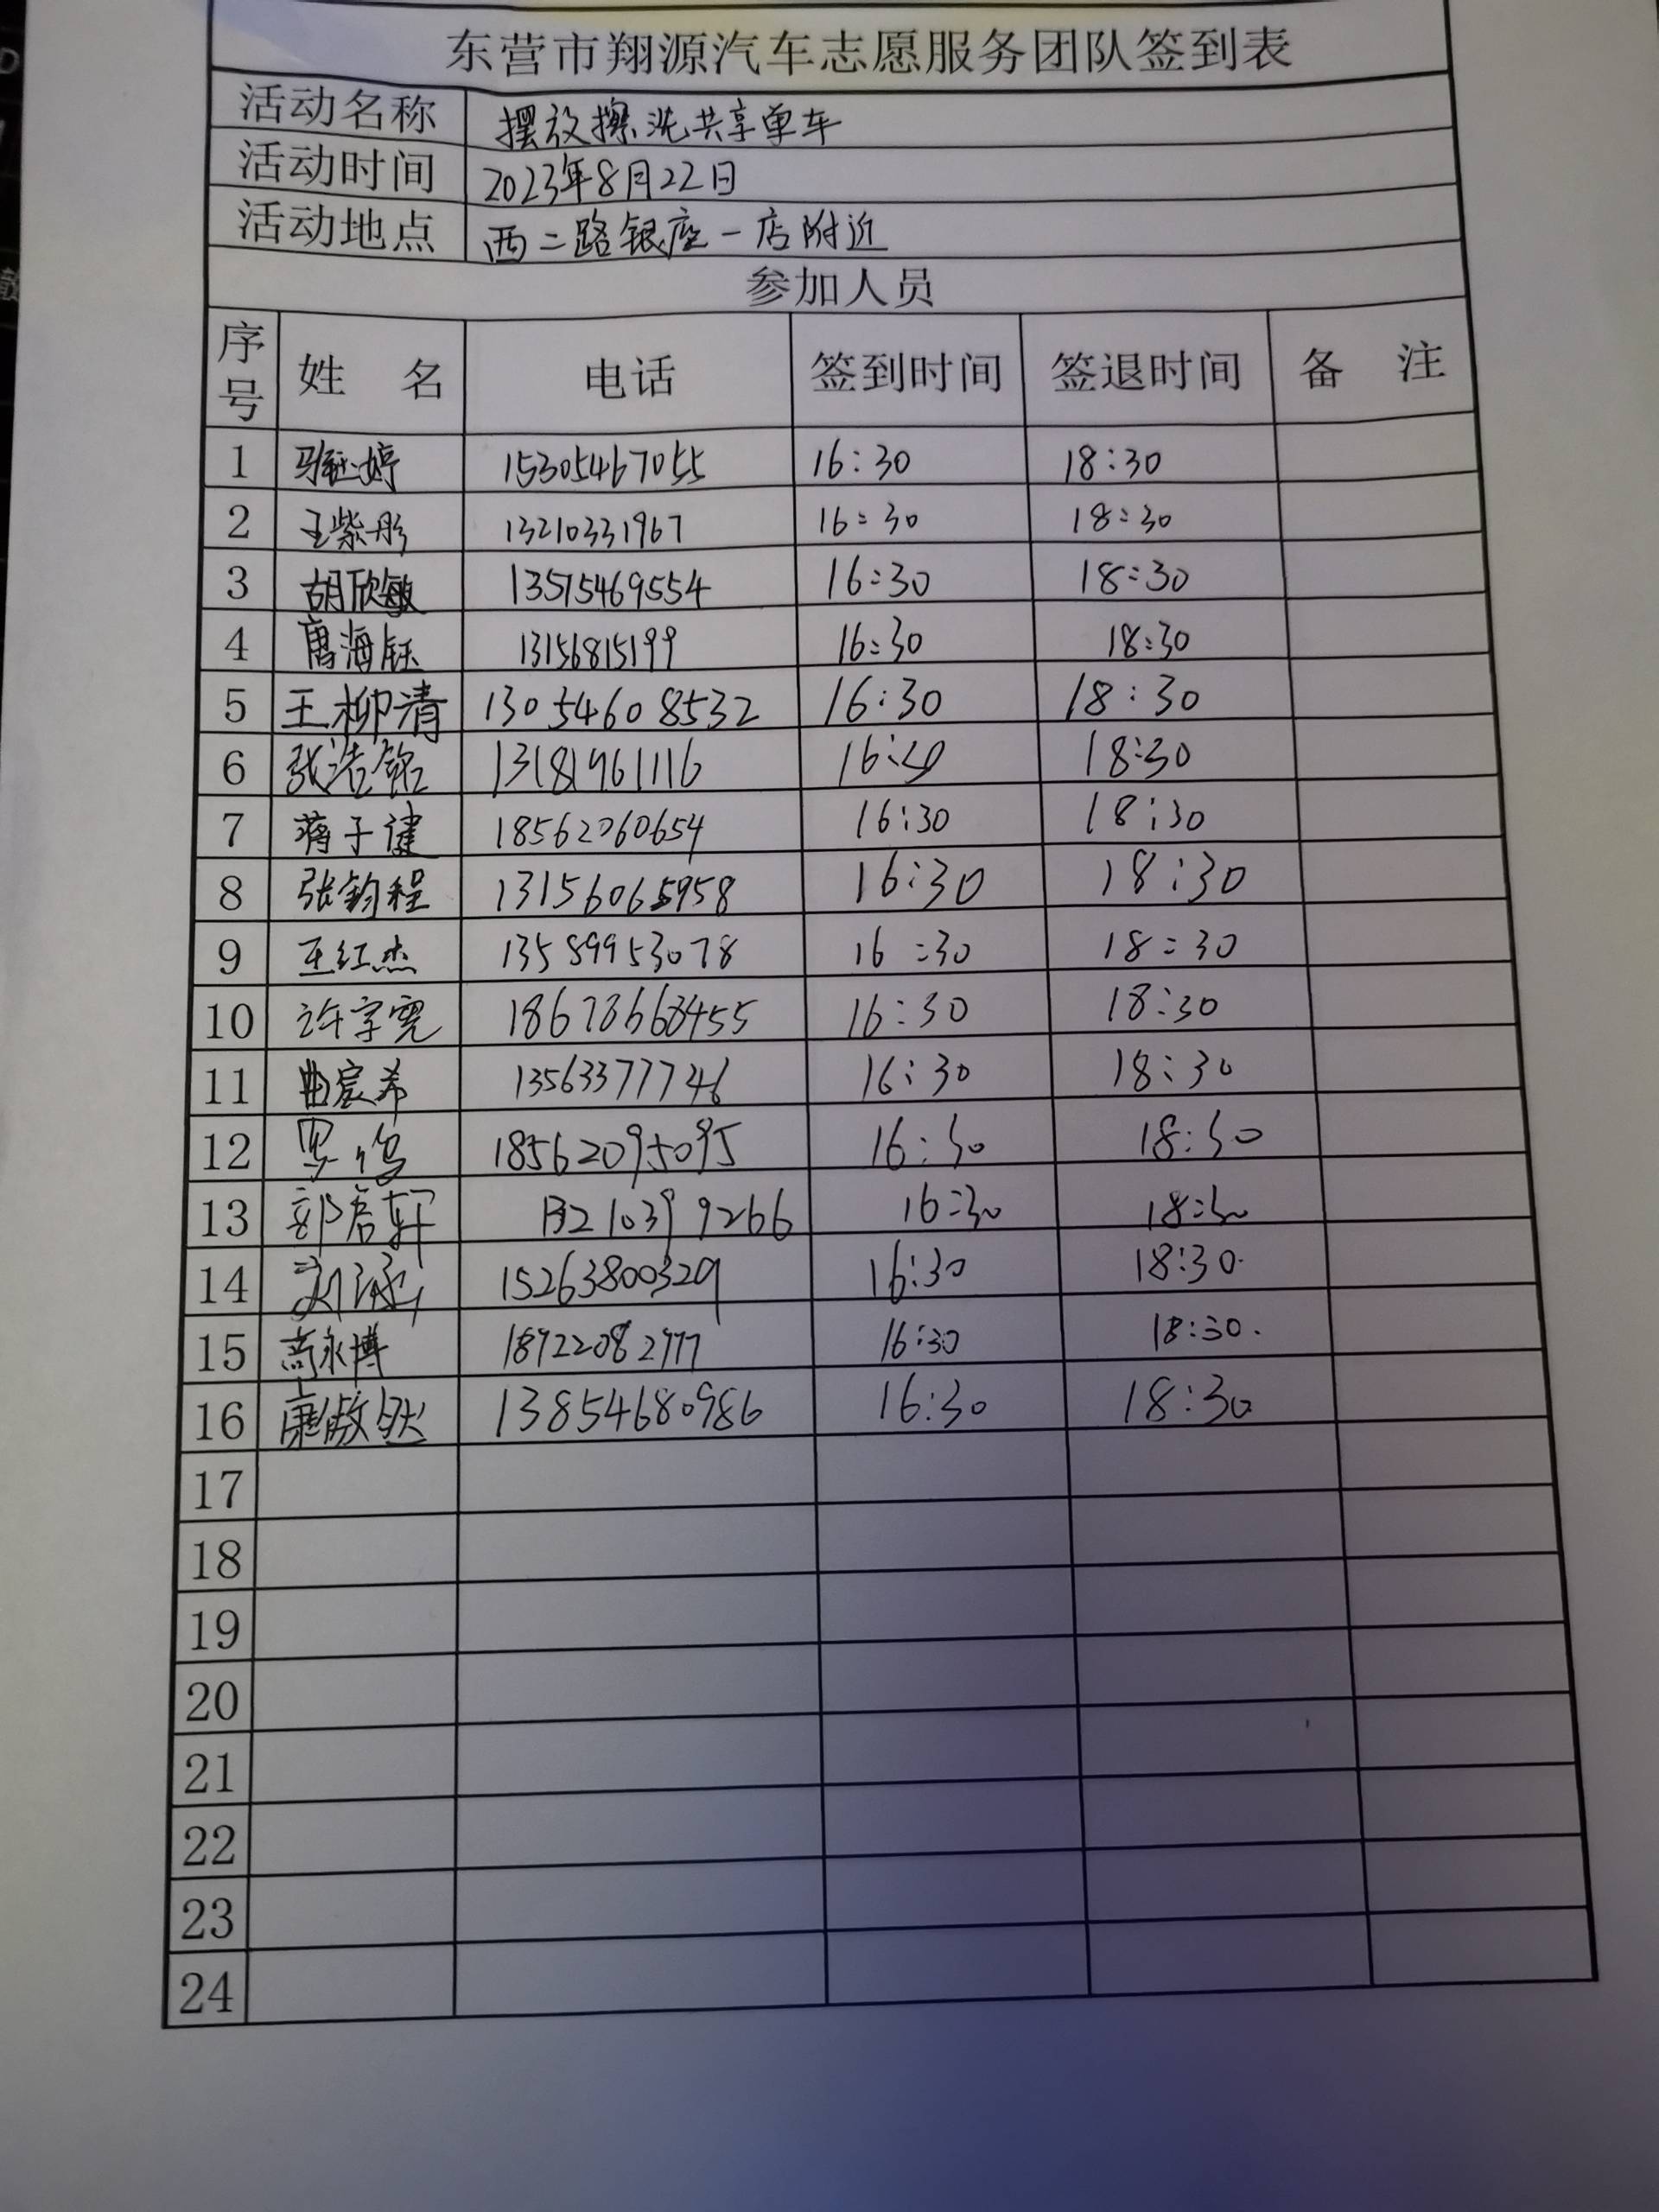 东营市翔源汽车志愿服务团队签到表
活动名称 摆放擦洗共享单车
活动时间 2023年8月22日
活动地点 西二路银座一店附近
参加人员
序号 姓名 电话 签到时间 签退时间 备注
1 婷 15305467055 16:30 18:30
2 王紫彤 13210331967 16:30 18:30
3 胡欣敏 13515469554 16:30 18:30
4 唐海钰 13156815199 16:30 18:30
5 王柳清 13054608532 16:30 18:30
6 张浩铭 13181961116 16:30 18:30
7 蒋子健 18562060654 16:30 18:30
8 张钧程 13156065958 16:30 18:30
9 王红杰 13589953078 16:30 18:30
10 许字霓 16:30 18:30
11 曲宸希 13563377746 16:30 18:30
12 罗鸣 18562095095 16:30 18:30
13 郭启轩 13210399266 16:30 18:30
14 刘 15263800329 16:30 18:30
15 高永博 16:30 18:30
16 廉傲 13854680986 16:30 18:30
17
18
19
20
21
22
23
24